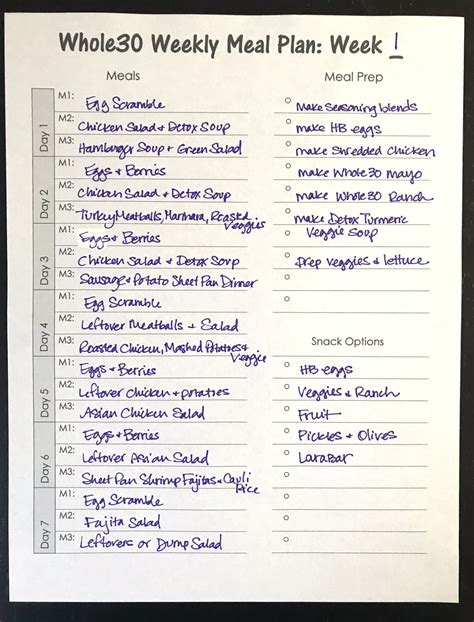 Whole30 Weekly Meal Plan: Week 1
Meals
Day 1
M1: Egg Scramble
M2: Chicken Salad + Detox Soup
M3: Hamburger Soup + Green Salad
Day 2
M1: Eggs + Berries
M2: Chicken Salad + Detox Soup
M3: Turkey Meatballs, Marinara, Roasted
Veggies
Day 3
M1: Eggs + Berries
M2: Chicken Salad + Detox Soup
M3: Sausage + Potato Sheet Pan Dinner
Day 4
M1: Egg Scramble
M2: Leftover Meatballs + Salad
M3: Roasted Chicken, Mashed Potatoes +
Veggie
Day 5
M1: Eggs + Berries
M2: Leftover Chicken + potatoes
M3: Asian Chicken Salad
Day 6
M1: Eggs + Berries
M2: Leftover Asian Salad
M3: Sheet Pan Shrimp Fajitas + Cauli
Rice
Day 7
M1: Egg Scramble
M2: Fajita Salad
M3: Leftovers or Dump Salad
Meal Prep
make seasoning blends
make HB eggs
make Shredded Chicken
make Whole30 mayo
make Whole30 Ranch
make Detox Turmeric
Veggie Soup
Prep veggies + lettuce
Snack Options
HB eggs
Veggies + Ranch
Fruit
Pickles + Olives
Larabar